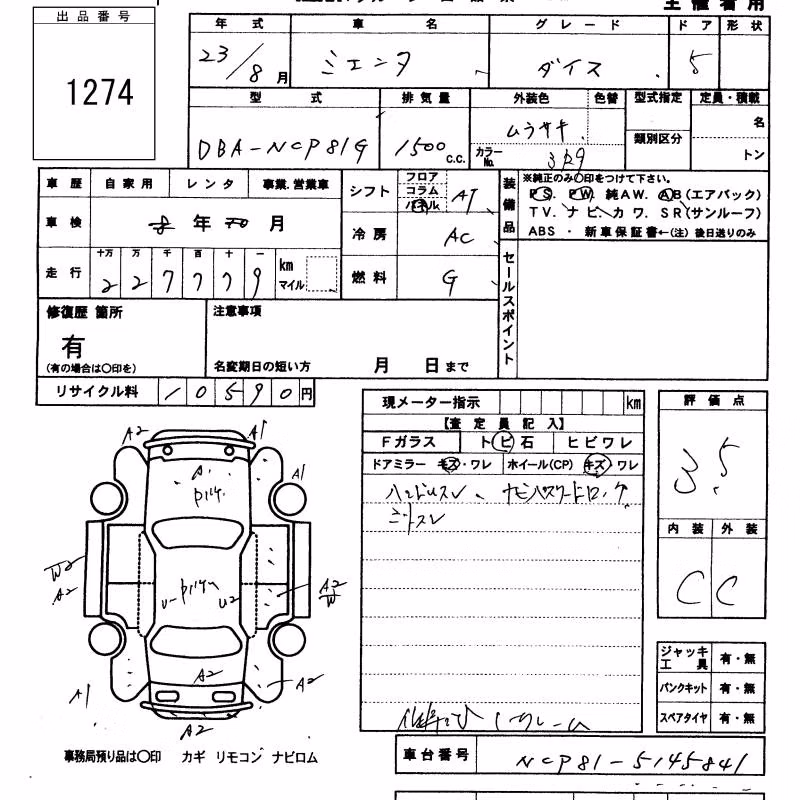 出品番号
1274
主催者用
年式 車名 グレード ドア 形状
23/8月 シエンタ ダイス 5
型式 排気量 外装色 色替 型式指定 定員・積載
DBA-NCP81G 1500c.c. ムラサキ 類別区分 名
カラーNo. 3P9 トン
車歴 自家用 レンタ 事業.営業車
シフト フロア コラム パネル AT
装備品 ※純正のみ○印をつけて下さい。
PS. PW. 純AW. AB(エアバック)
TV. ナビ. カワ. SR(サンルーフ)
ABS ・ 新車保証書←(注)後日送りのみ
車検 年 月
冷房 AC
走行 十万 万 千 百 十 一 km マイル
227779
燃料 G
セールスポイント
修復歴 箇所
有
(有の場合は○印を)
注意事項
名変期日の短い方 月 日まで
リサイクル料 10590円
現メーター指示 km
【査定員記入】
Fガラス トビ石 ヒビワレ
ドアミラー キズ・ワレ ホイール(CP) キズ・ワレ
ハンドルスレ、ナビパスワードロック
シートスレ
評価点
3.5
内装 外装
C C
A2 A1
A A1
W2
A2
A2
W
U U2
A1 A2 A2
A2
ジャッキ工具 有・無
パンクキット 有・無
スペアタイヤ 有・無
事務局預り品は○印 カギ リモコン ナビロム
車台番号 NCP81-5145841